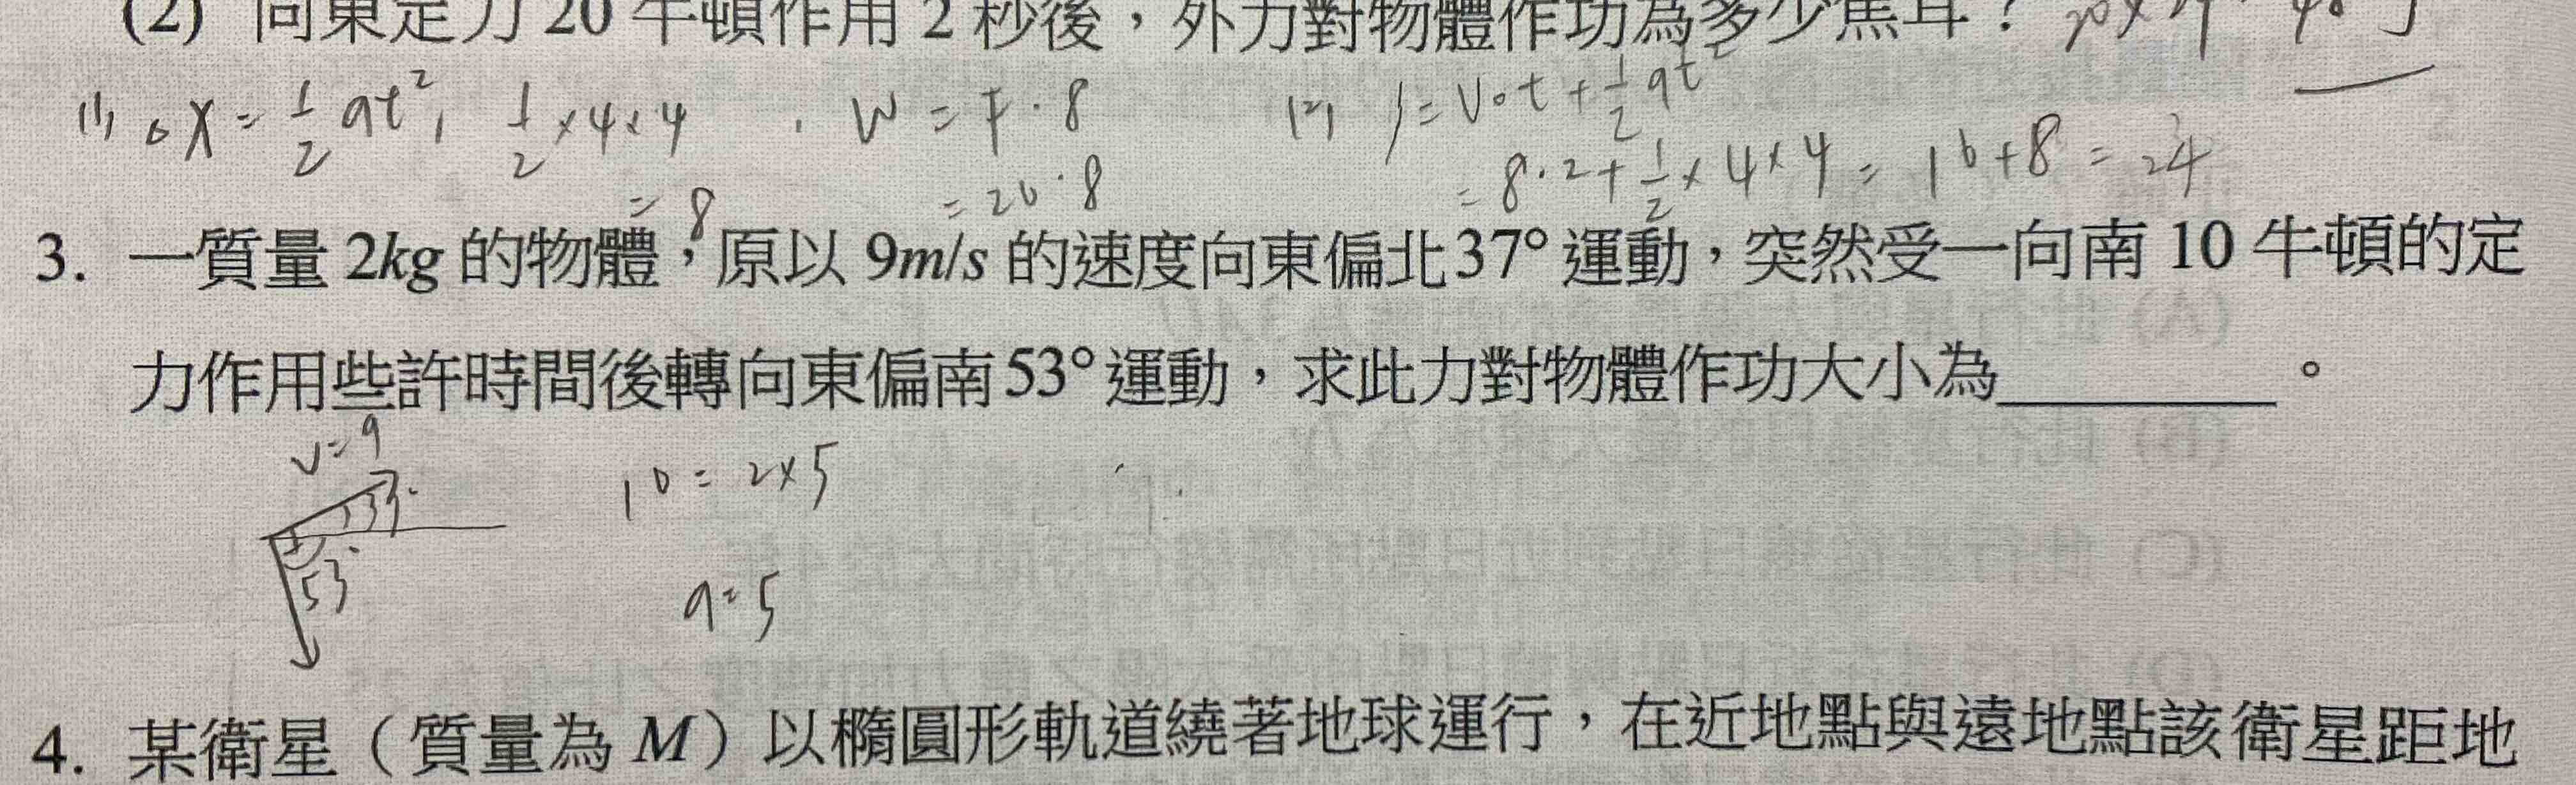 (2) 向東定力 20 牛頓作用 2 秒後，外力對物體作功為多少焦耳？
(1) △X = 1/2 at², 1/2 × 4 × 4 = 8
W = F · 8 = 20 · 8
(2) S = V₀t + 1/2 at²
= 8 · 2 + 1/2 × 4 × 4 = 16 + 8 = 24
3. 一質量 2kg 的物體，原以 9m/s 的速度向東偏北 37° 運動，突然受一向南 10 牛頓的定
力作用些許時間後轉向東偏南 53° 運動，求此力對物體作功大小為________。
V = 9
37°
53°
10 = 2 × 5
a = 5
4. 某衛星（質量為 M）以橢圓形軌道繞著地球運行，在近地點與遠地點該衛星距地